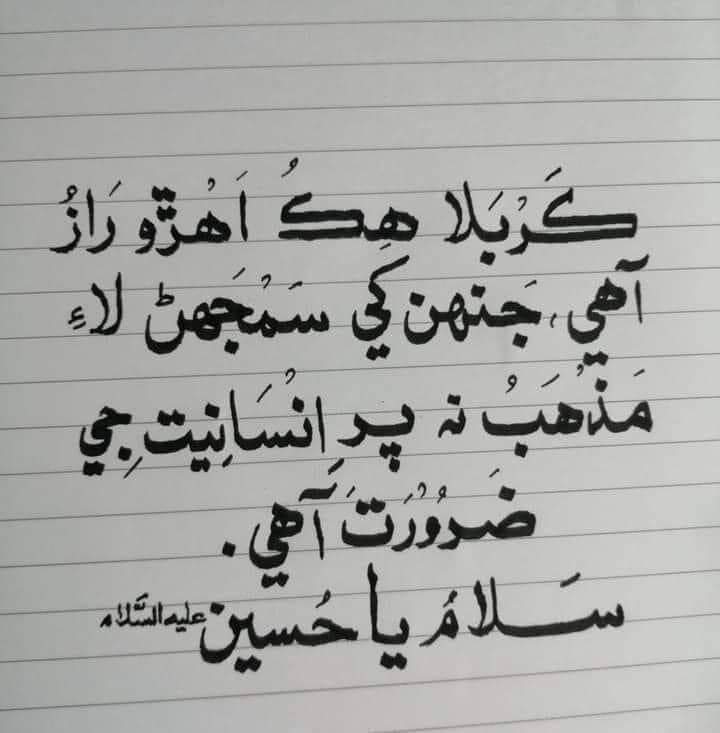 ڪَرْبَلا هِڪُ اَهْڙو رَازُ
آهي، جَنهن کي سَمْجَهڻ لاءِ
مَذْهَبُ نہ پر اِنْسَانِيت جِي
ضَرُوْرَتَ آهي.
سَلامُ يا حُسين عليہ السَّلام